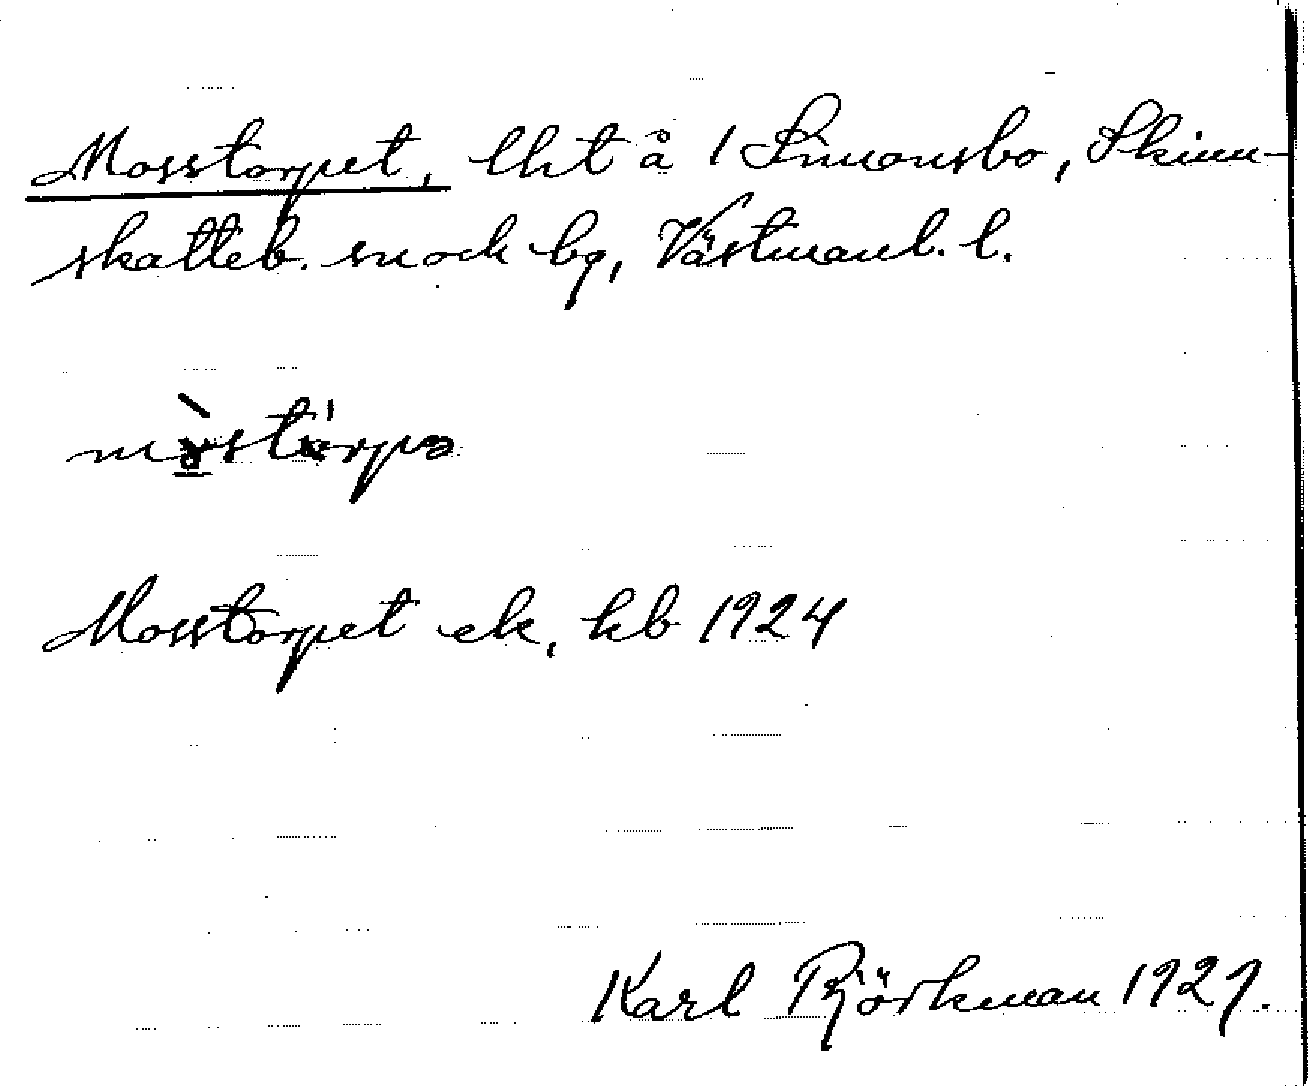 Mosstorpet, lht å 1 Simonsbo, Skinn-
skatteb. snock bg, Västmanl. l.
Mosstorpet ek, kb 1924
Karl Björkman 1927.